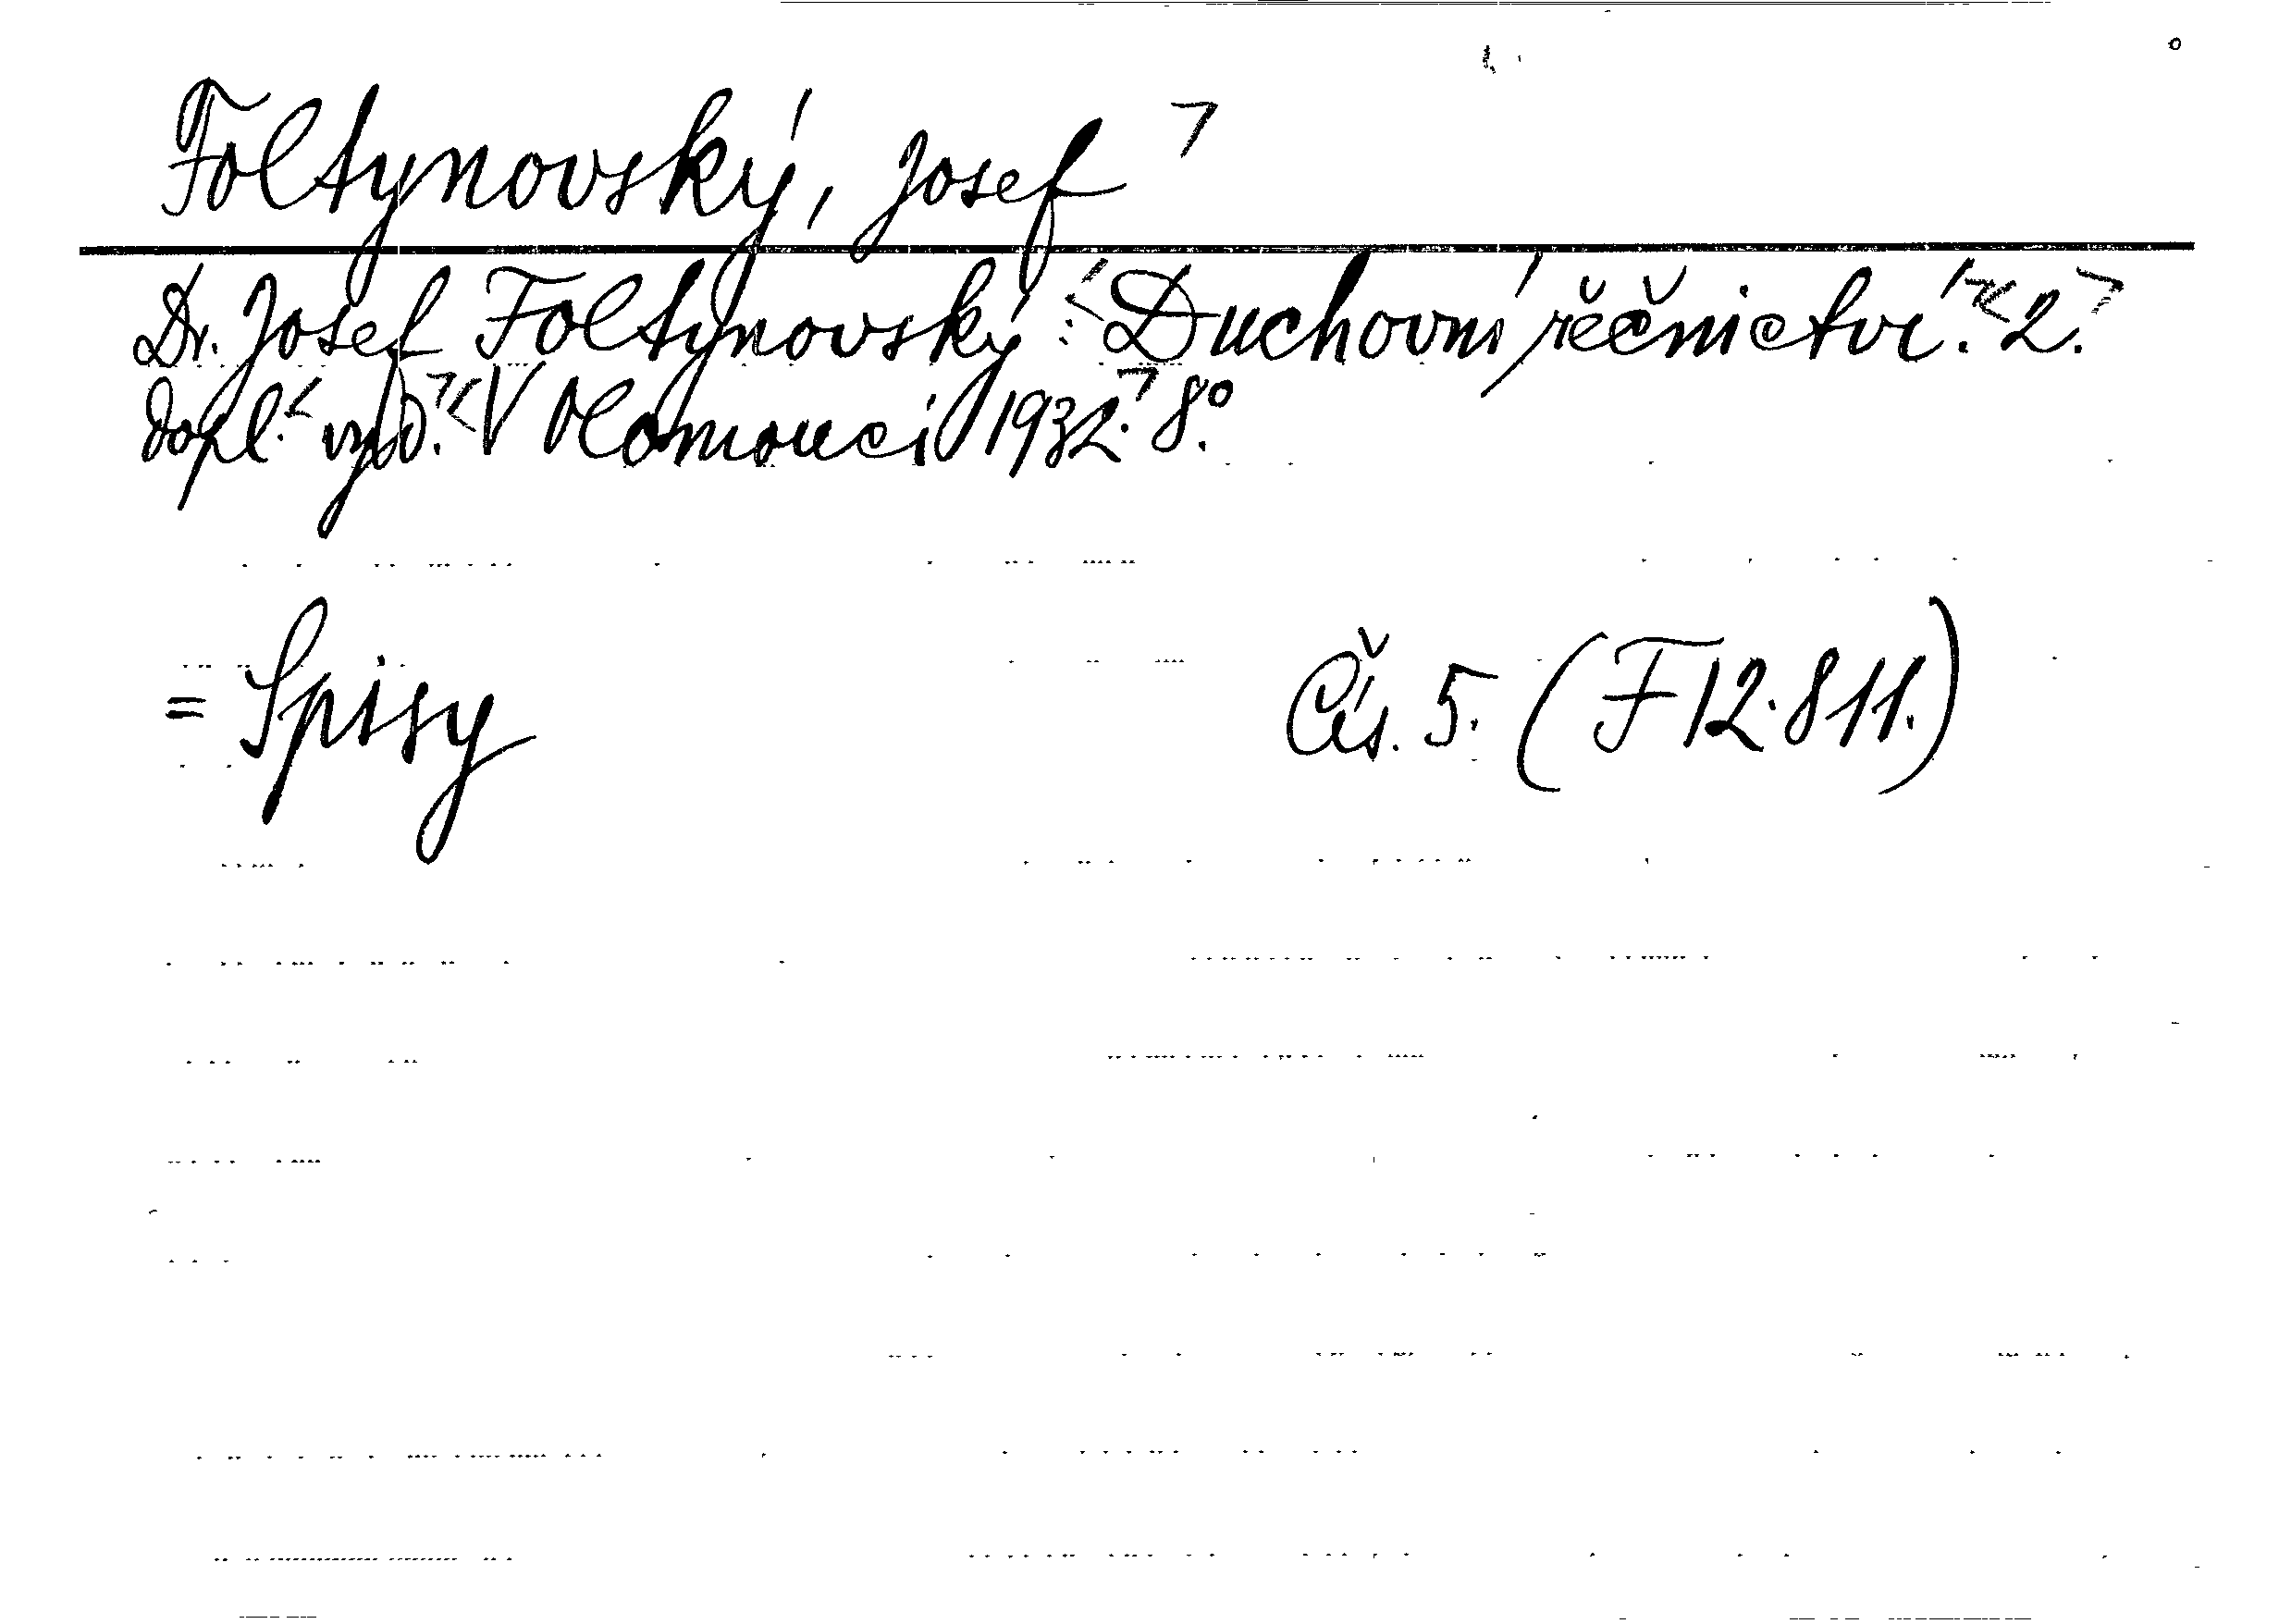 Foltynovský, Josef
Dr. Josef Foltynovský: Duchovní řečnictví. 2.
dopl. vyd. V Olomouci 1932. 8°.
= Spisy Čís. 5. (F 12.811.)